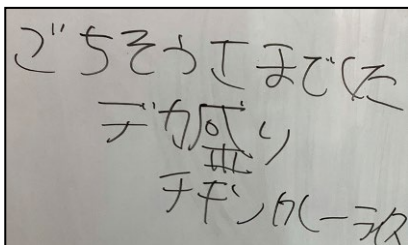 ごちそうさまでした
デカ盛り
チキンカレー弐